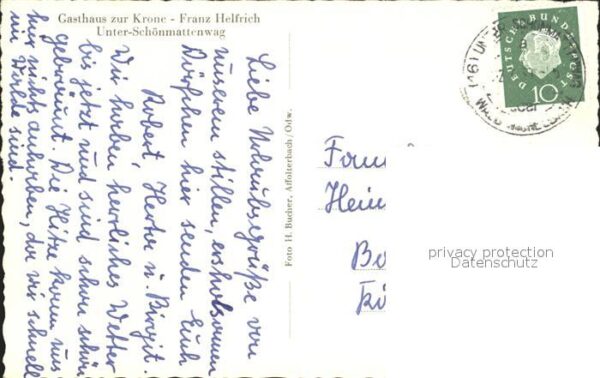 Gasthaus zur Krone - Franz Helfrich
Unter-Schönmattenwag
Liebe Urlaubsgrüße von
unserem stillen, erholsamen
Dörfchen hier senden Euch
Robert, Herta u. Birgit.
Wir haben herrliches Wetter
bis jetzt und sind schon schön
gebräunt. Die Hitze kann uns
hier nichts anhaben, da wir schnell
im Walde sind.
Foto H. Bucher, Affolterbach/Odw.
DEUTSCHE BUNDESPOST
10
Hein
Bo
privacy protection
Datenschutz